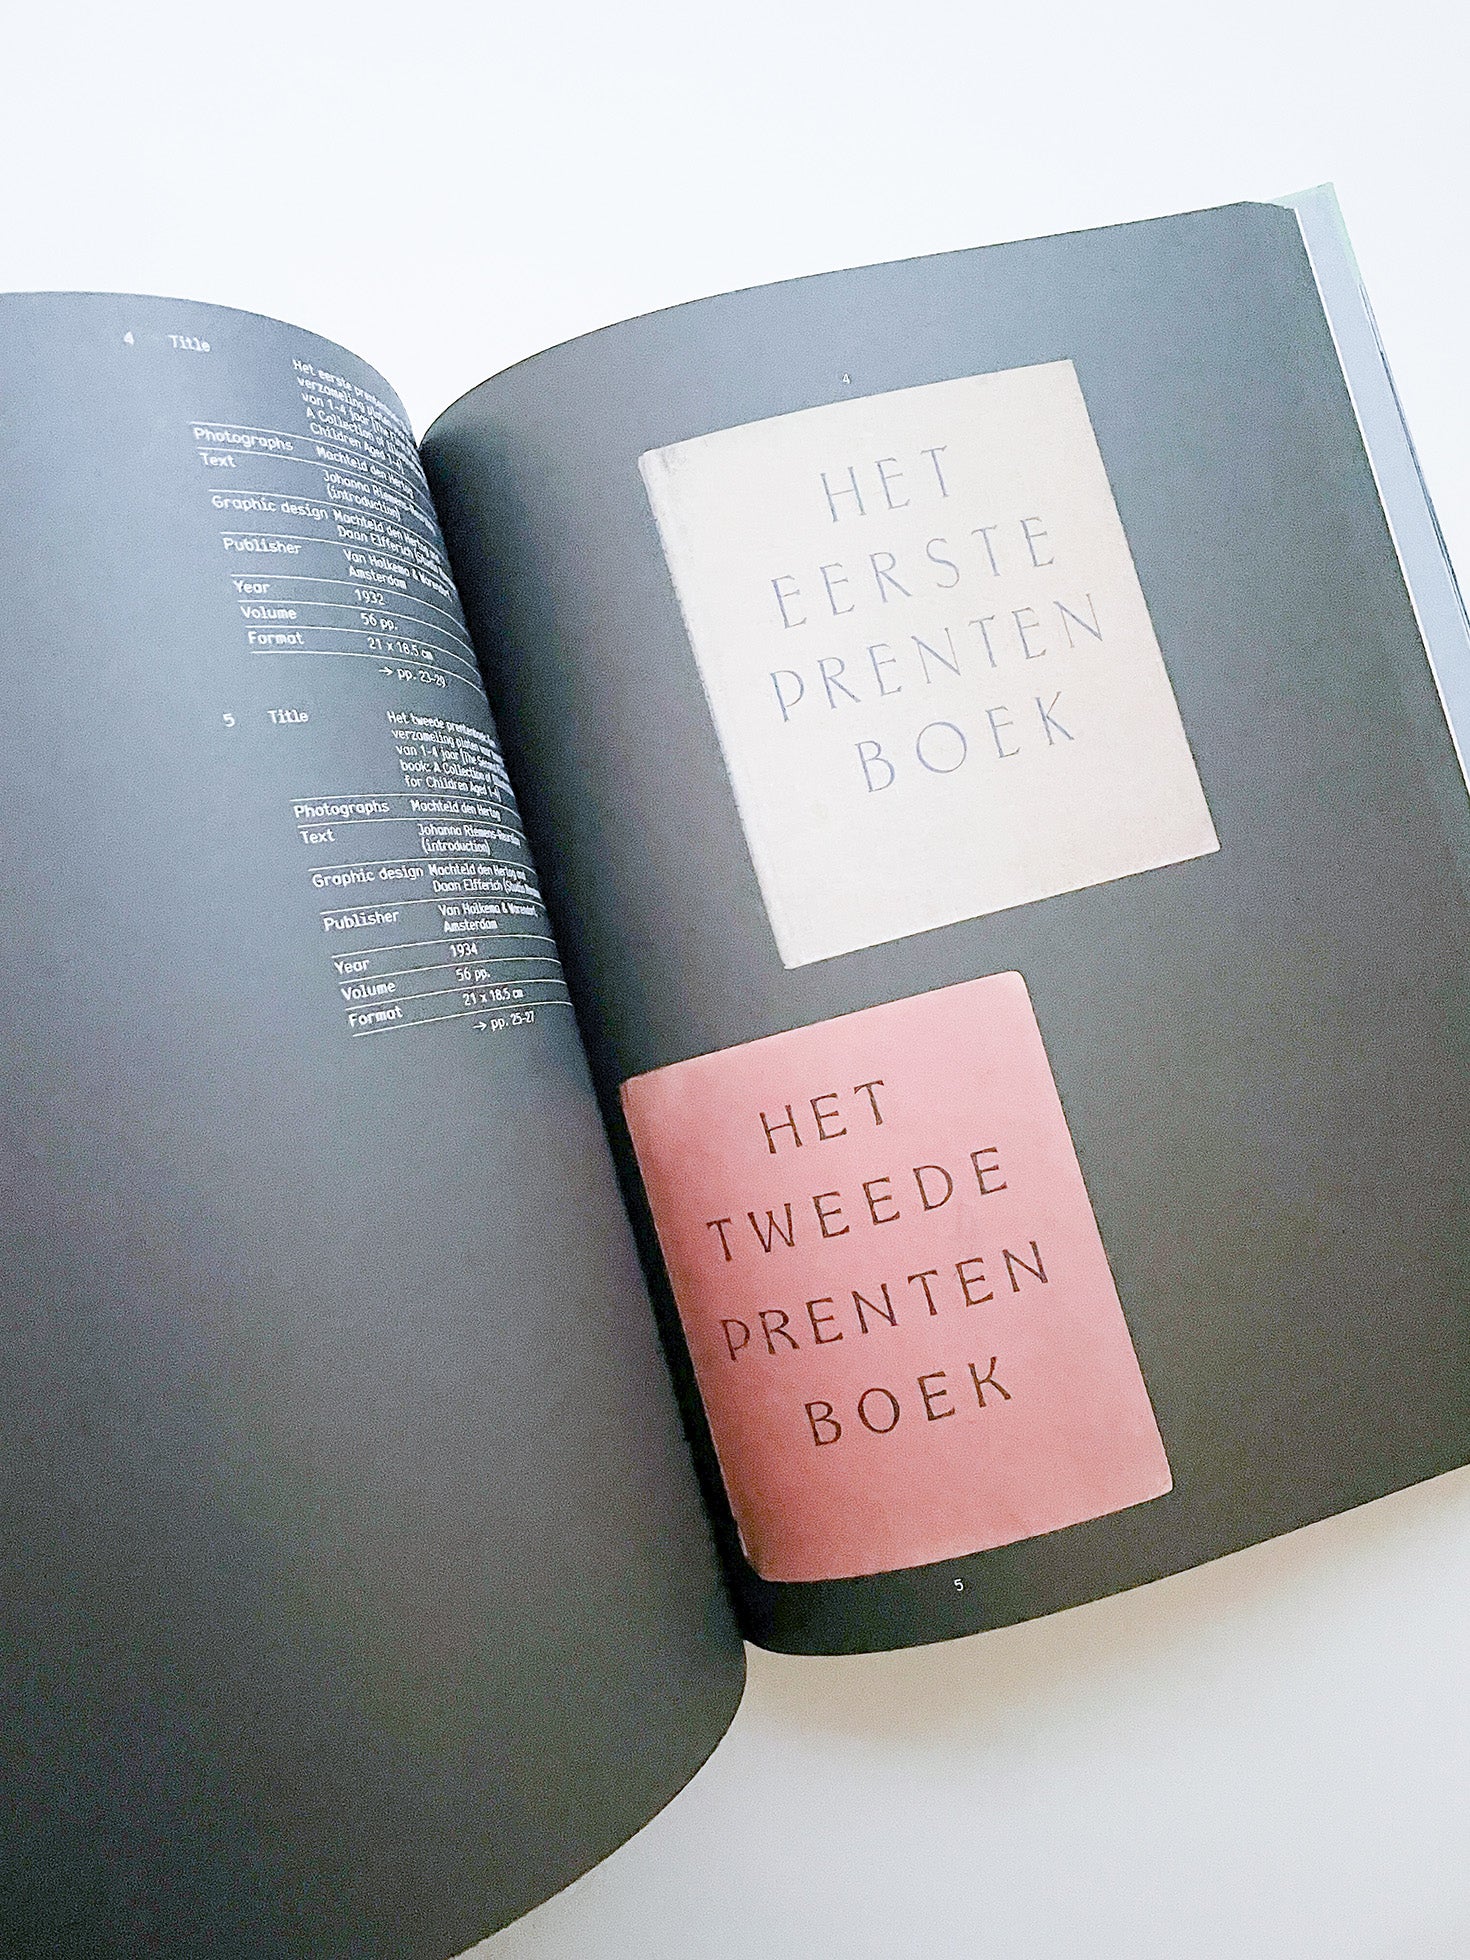 4 Title
Het eerste
verzameling platen
van 1-4 jaar [The
A Collection of
Children Aged 1-4]
Photographs Machteld den Hertog
Text Johanna Riemens-
(introduction)
Graphic design Machteld den Hertog and
Daan Elfferich (Studio
Publisher Van Holkema & Warendorf,
Amsterdam
Year 1932
Volume 56 pp.
Format 21 x 18.5 cm
→ pp. 23-29
5 Title
Het tweede prentenboek
verzameling platen voor
van 1-4 jaar [The
book: A Collection of
for Children Aged 1-4]
Photographs Machteld den Hertog
Text Johanna Riemens-
(introduction)
Graphic design Machteld den Hertog and
Daan Elfferich (Studio
Publisher Van Holkema & Warendorf,
Amsterdam
Year 1934
Volume 56 pp.
Format 21 x 18.5 cm
→ pp. 25-27
4
HET
EERSTE
PRENTEN
BOEK
HET
TWEEDE
PRENTEN
BOEK
5